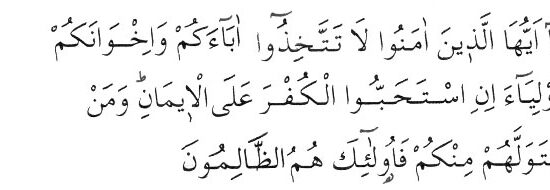 اَيُّهَا الَّذ۪ينَ اٰمَنُوا لَا تَتَّخِذُٓوا اٰبَٓاءَكُمْ وَاِخْوَانَكُمْ
وْلِيَٓاءَ اِنِ اسْتَحَبُّوا الْكُفْرَ عَلَى الْا۪يمَانِۜ وَمَنْ
تَوَلَّهُمْ مِنْكُمْ فَاُو۬لٰٓئِكَ هُمُ الظَّالِمُونَ